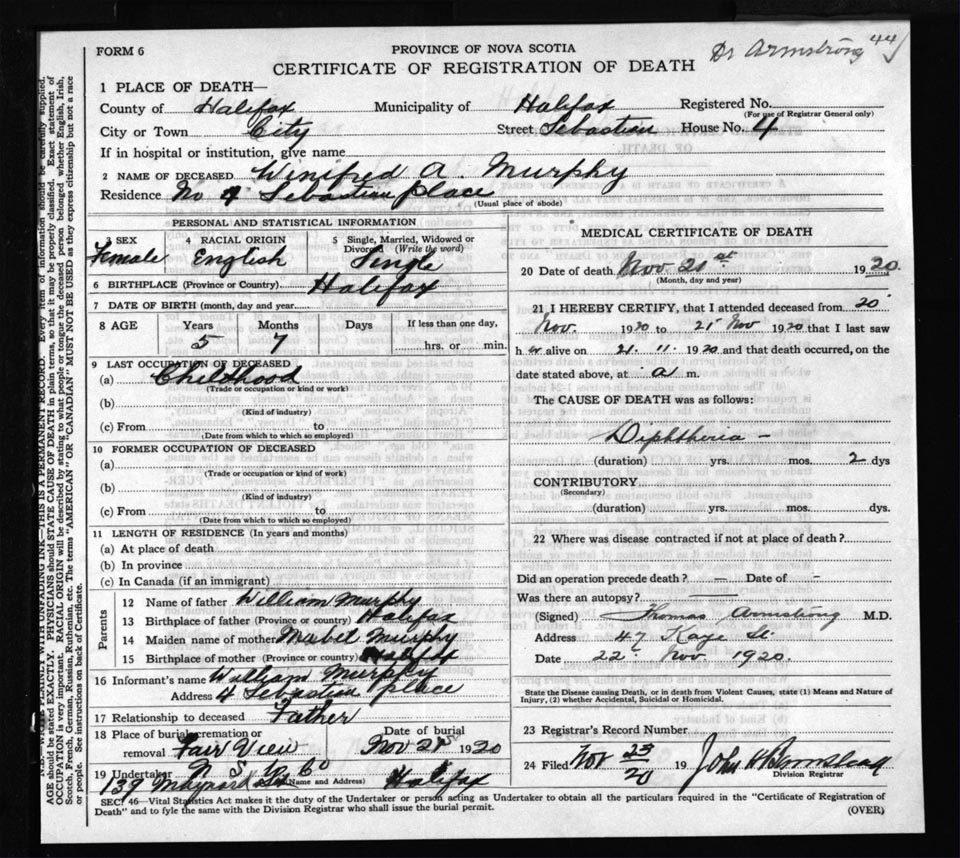 FORM 6
PROVINCE OF NOVA SCOTIA
Dr Armstrong 44
CERTIFICATE OF REGISTRATION OF DEATH
1 PLACE OF DEATH—
County of Halifax Municipality of Halifax Registered No.
(For use of Registrar General only)
City or Town City Street Sebastian House No. 4
If in hospital or institution, give name
2 NAME OF DECEASED Winifred A. Murphy
Residence No 4 Sebastian place
(Usual place of abode)
PERSONAL AND STATISTICAL INFORMATION
3 SEX 4 RACIAL ORIGIN 5 Single, Married, Widowed or Divorced (Write the word)
Female English Single
6 BIRTHPLACE (Province or Country) Halifax
7 DATE OF BIRTH (month, day and year)
8 AGE Years Months Days If less than one day,
5 7 hrs. or min.
9 LAST OCCUPATION OF DECEASED
(a) Childhood
(Trade or occupation or kind or work)
(b)
(Kind of industry)
(c) From
(Date from which to which so employed)
10 FORMER OCCUPATION OF DECEASED
(a)
(Trade or occupation or kind of work)
(b)
(Kind of industry)
(c) From
(Date from which to which so employed)
11 LENGTH OF RESIDENCE (In years and months)
(a) At place of death
(b) In province
(c) In Canada (if an immigrant)
Parents
12 Name of father William Murphy
13 Birthplace of father (Province or country) Halifax
14 Maiden name of mother Mabel Murphy
15 Birthplace of mother (Province or country) Halifax
16 Informant's name William Murphy
Address 4 Sebastian place
17 Relationship to deceased Father
18 Place of burial, cremation or removal Fair View
Date of burial Nov 21 1920
19 Undertaker
(Name and Address)
139 Maynard St Halifax
MEDICAL CERTIFICATE OF DEATH
20 Date of death Nov. 21st 1920.
(Month, day and year)
21 I HEREBY CERTIFY, that I attended deceased from 20
Nov. 1920 to 21 Nov 1920 that I last saw
h er alive on 21. 11. 1920 and that death occurred, on the
date stated above, at a m.
The CAUSE OF DEATH was as follows:
Diphtheria –
(duration) yrs. mos. 2 dys
CONTRIBUTORY
(Secondary)
(duration) yrs. mos. dys.
22 Where was disease contracted if not at place of death?
Did an operation precede death? — Date of -
Was there an autopsy? —
(Signed) Thomas Armstrong M.D.
Address 47 Kaye St.
Date 22 Nov. 1920.
State the Disease causing Death, or in death from Violent Causes, state (1) Means and Nature of
Injury, (2) whether Accidental, Suicidal or Homicidal.
23 Registrar's Record Number
24 Filed Nov 23/20 19
Division Registrar
SEC. 46—Vital Statistics Act makes it the duty of the Undertaker or person acting as Undertaker to obtain all the particulars required in the "Certificate of Registration of
Death" and to fyle the same with the Division Registrar who shall issue the burial permit.
(OVER)
WRITE PLAINLY WITH UNFADING INK—THIS IS A PERMANENT RECORD. Every item of information should be carefully supplied.
AGE should be stated EXACTLY. PHYSICIANS should STATE CAUSE OF DEATH in plain terms, so that it may be properly classified. Exact statement of
OCCUPATION is very important. RACIAL ORIGIN will be described by stating to what people or tongue the deceased person belonged whether English, Irish,
Scotch, French, German, Russian, Ruthenian, etc. The terms "AMERICAN" OR "CANADIAN" MUST NOT BE USED as they express citizenship but not a race
or people. See instructions on back of Certificate.